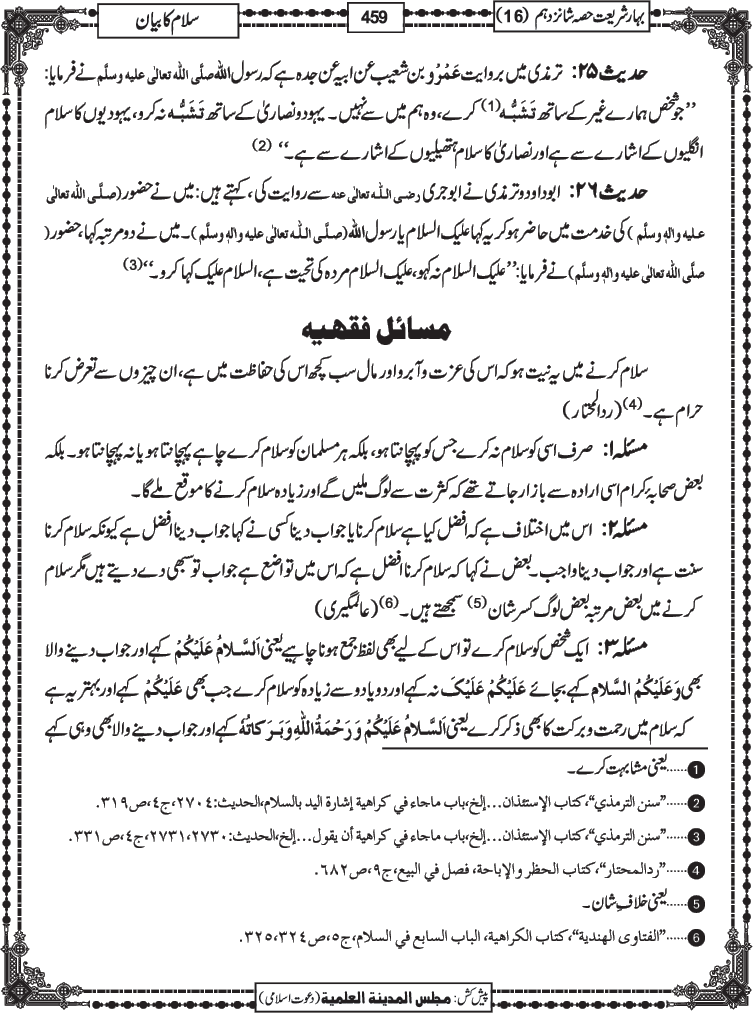 بہارِ شریعت حصہ شانزدہم (16)
459
سلام کا بیان
حدیث ۲۵: ترمذی میں بروایت عَمْرُو بن شعیب عن ابیہ عن جدہ ہے کہ رسول اللہ صلَّی اللہ تعالٰی علیہ وسلَّم نے فرمایا:
’’جو شخص ہمارے غیر کے ساتھ تَشَبُّہ (1) کرے، وہ ہم میں سے نہیں۔ یہود و نصاریٰ کے ساتھ تَشَبُّہ نہ کرو، یہودیوں کا سلام
انگلیوں کے اشارے سے ہے اور نصاریٰ کا سلام ہتھیلیوں کے اشارے سے ہے۔‘‘ (2)
حدیث ۲۶: ابو داود و ترمذی نے ابو جری رضی اللہ تعالٰی عنہ سے روایت کی، کہتے ہیں: میں نے حضور (صلَّی اللہ تعالٰی
علیہ واٰلہٖ وسلَّم) کی خدمت میں حاضر ہو کر یہ کہا علیک السلام یا رسول اللہ (صلَّی اللہ تعالٰی علیہ واٰلہٖ وسلَّم)۔ میں نے دو مرتبہ کہا، حضور (
صلَّی اللہ تعالٰی علیہ واٰلہٖ وسلَّم) نے فرمایا: ’’علیک السلام نہ کہو، علیک السلام مردہ کی تحیت ہے، السلام علیک کہا کرو۔‘‘ (3)
مسائل فقھیہ
سلام کرنے میں یہ نیت ہو کہ اس کی عزت و آبرو اور مال سب کچھ اس کی حفاظت میں ہے، ان چیزوں سے تعرض کرنا
حرام ہے۔ (4) (ردالمحتار)
مسئلہ ۱: صرف اسی کو سلام نہ کرے جس کو پہچانتا ہو، بلکہ ہر مسلمان کو سلام کرے چاہے پہچانتا ہو یا نہ پہچانتا ہو۔ بلکہ
بعض صحابۂ کرام اسی ارادہ سے بازار جاتے تھے کہ کثرت سے لوگ ملیں گے اور زیادہ سلام کرنے کا موقع ملے گا۔
مسئلہ ۲: اس میں اختلاف ہے کہ افضل کیا ہے سلام کرنا یا جواب دینا کسی نے کہا جواب دینا افضل ہے کیونکہ سلام کرنا
سنت ہے اور جواب دینا واجب۔ بعض نے کہا کہ سلام کرنا افضل ہے کہ اس میں تواضع ہے جواب تو سبھی دے دیتے ہیں مگر سلام
کرنے میں بعض مرتبہ بعض لوگ کسرِ شان (5) سمجھتے ہیں۔ (6) (عالمگیری)
مسئلہ ۳: ایک شخص کو سلام کرے تو اس کے لیے بھی لفظ جمع ہونا چاہیے یعنی اَلسَّلامُ عَلَیْکُمْ کہے اور جواب دینے والا
بھی وَعَلَیْکُمُ السَّلام کہے بجائے عَلَیْکُمْ عَلَیْکَ نہ کہے اور دو یا دو سے زیادہ کو سلام کرے جب بھی عَلَیْکُمْ کہے اور بہتر یہ ہے
کہ سلام میں رحمت و برکت کا بھی ذکر کرے یعنی اَلسَّلامُ عَلَیْکُمْ وَرَحْمَةُ اللّٰہِ وَبَرَکَاتُہٗ کہے اور جواب دینے والا بھی وہی کہے
1......یعنی مشابہت کرے۔
2......’’سنن الترمذي‘‘، کتاب الإستئذان...إلخ، باب ماجاء في کراھیة إشارة الید بالسلام، الحدیث: ۲۷۰۴، ج۴، ص۳۱۹.
3......’’سنن الترمذي‘‘، کتاب الإستئذان...إلخ، باب ماجاء في کراھیة أن یقول...إلخ، الحدیث: ۲۷۳۰، ۲۷۳۱، ج۴، ص۳۳۱.
4......’’ردالمحتار‘‘، کتاب الحظر والإباحة، فصل في البیع، ج۹، ص۶۸۲.
5......یعنی خلافِ شان۔
6......’’الفتاوی الھندیة‘‘، کتاب الکراھیة، الباب السابع في السلام، ج۵، ص۳۲۴، ۳۲۵.
پیش کش: مجلس المدینة العلمیة (دعوتِ اسلامی)